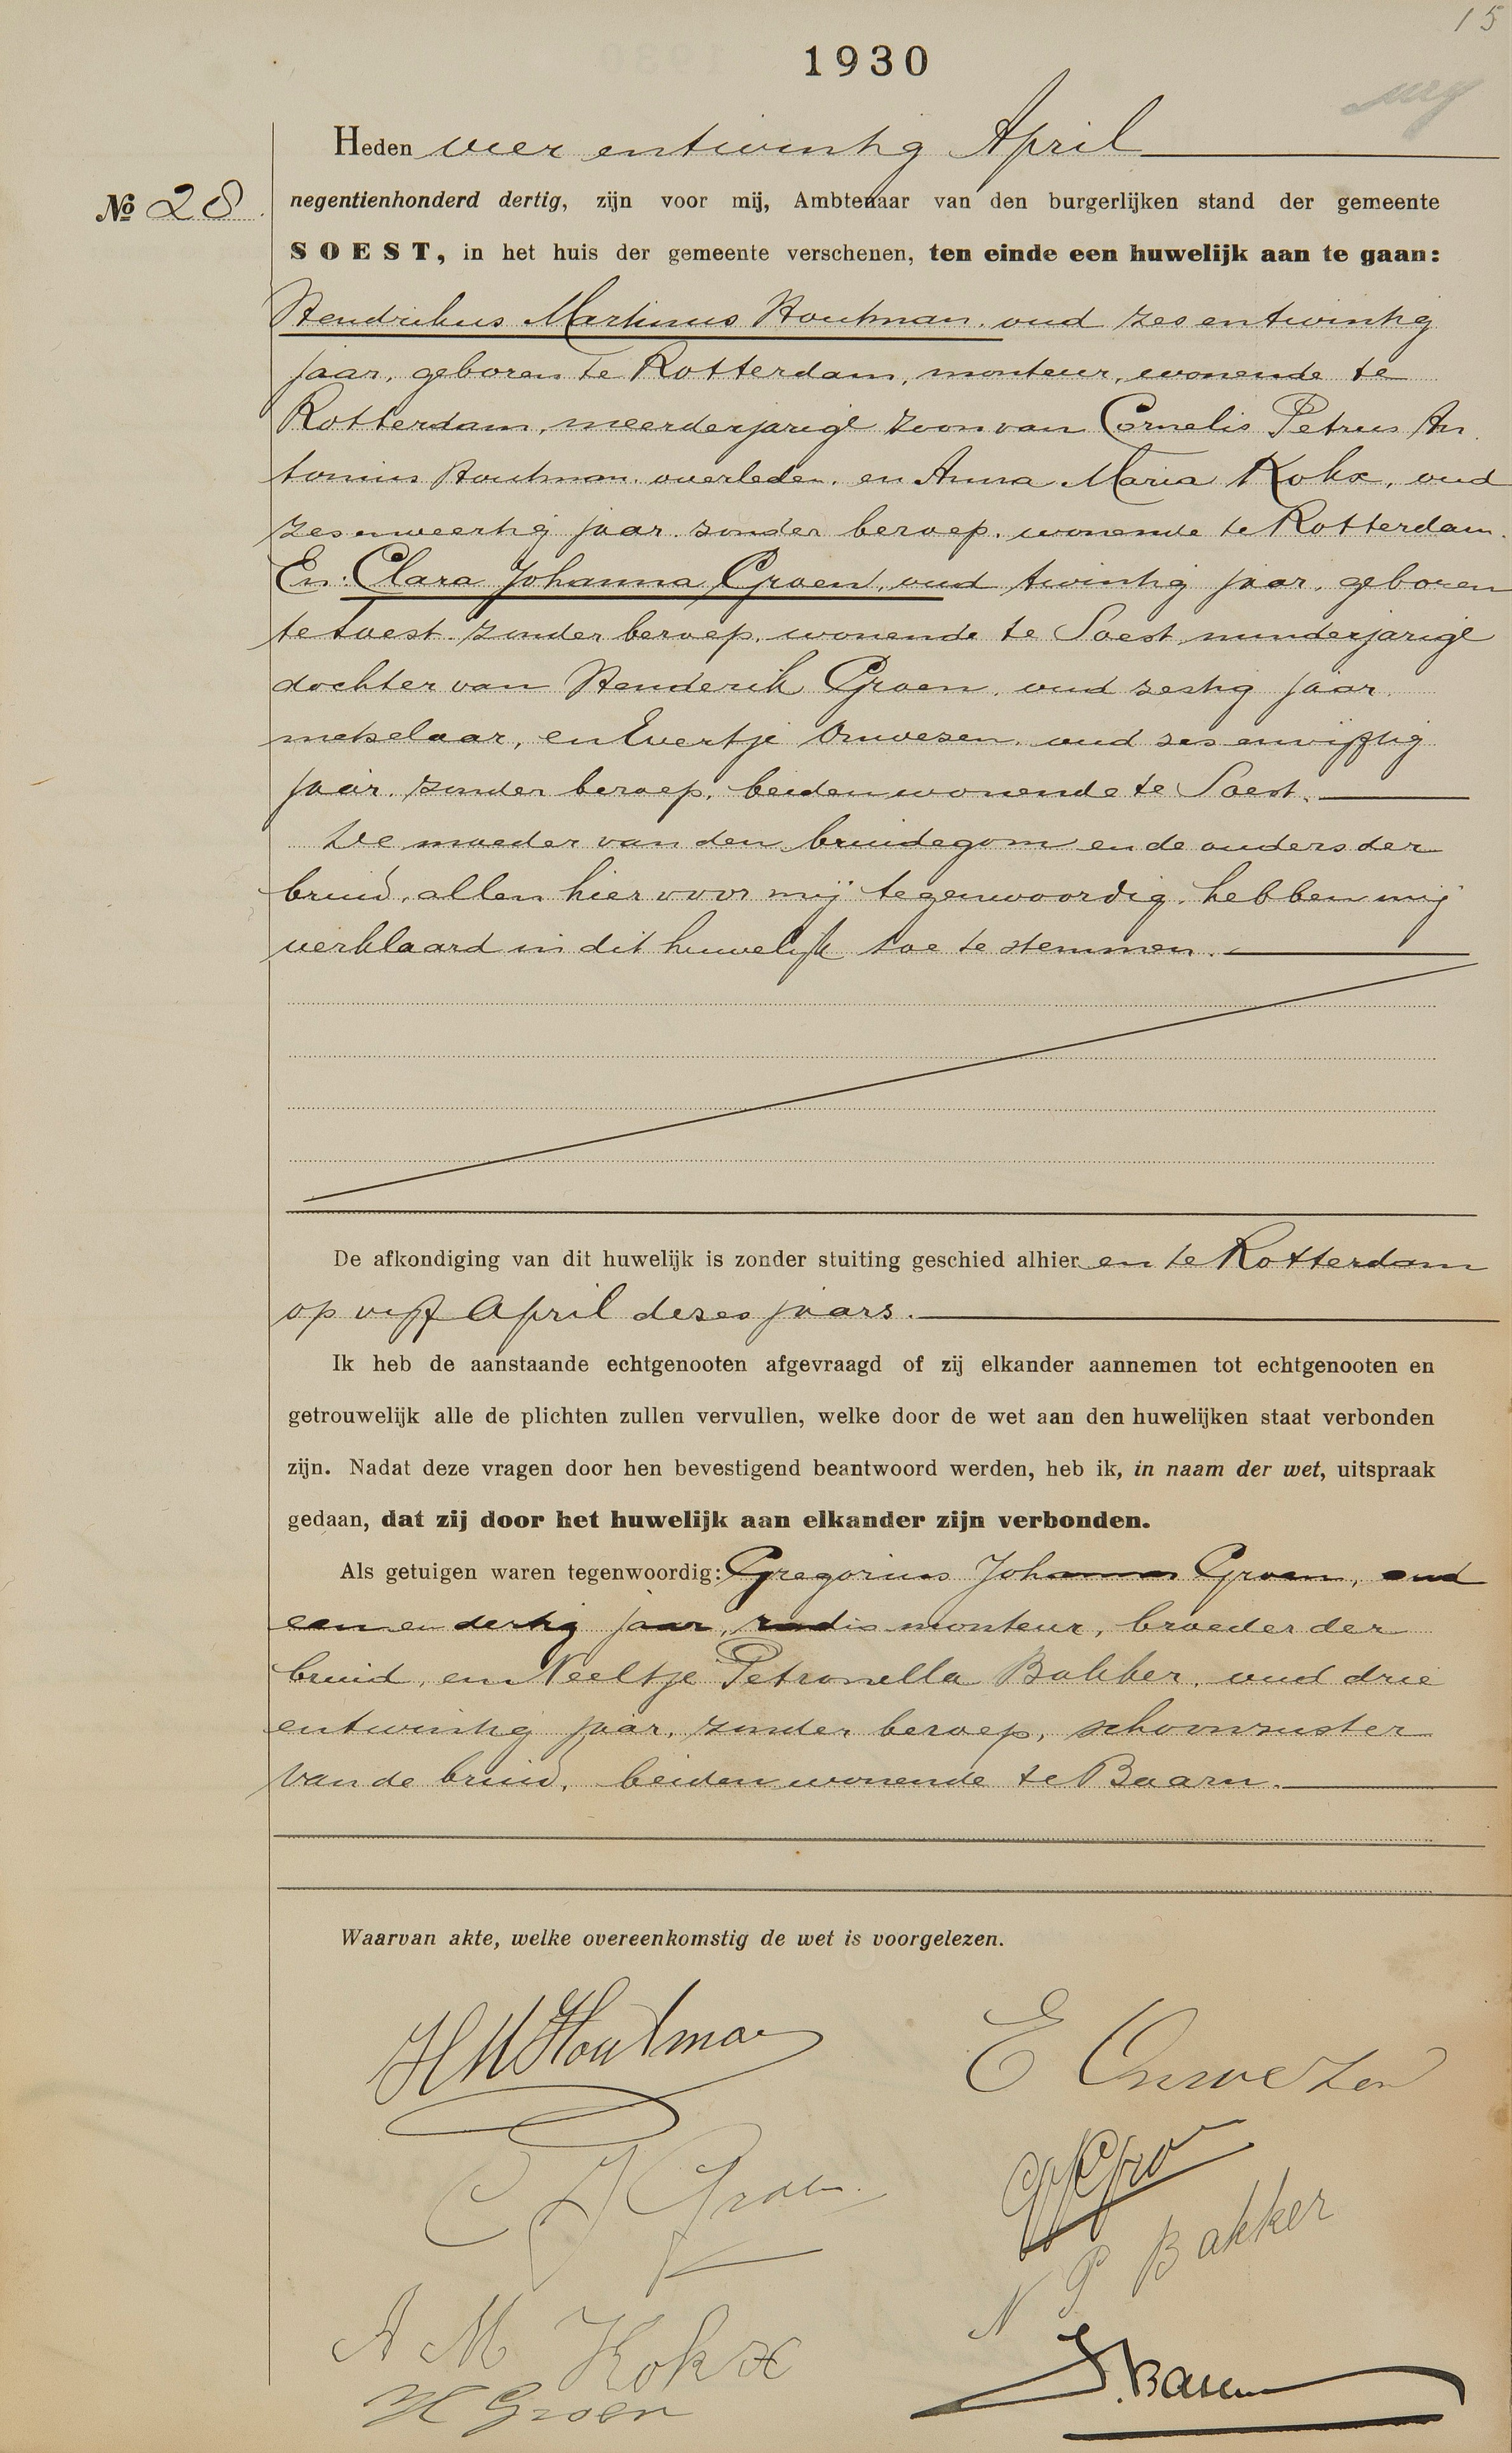 15
1930
Heden vier entwintig April
No 28
negentienhonderd dertig, zijn voor mij, Ambtenaar van den burgerlijken stand der gemeente
SOEST, in het huis der gemeente verschenen, ten einde een huwelijk aan te gaan:
Hendrikus Martinus Houtman, oud zes entwintig
jaar, geboren te Rotterdam, monteur, wonende te
Rotterdam, meerderjarige zoon van Cornelis Petrus An
tonius Houtman, overleden, en Anna Maria Kokx, oud
zesenveertig jaar, zonder beroep, wonende te Rotterdam.
En: Clara Johanna Groen, oud twintig jaar, geboren
te Soest, zonder beroep, wonende te Soest, minderjarige
dochter van Henderik Groen, oud zestig jaar,
metselaar, en Evertje Onwezen, oud zes envijftig
jaar, zonder beroep, beiden wonende te Soest.
De moeder van den bruidegom en de ouders der
bruid, allen hier voor mij tegenwoordig, hebben mij
verklaard in dit huwelijk toe te stemmen.
De afkondiging van dit huwelijk is zonder stuiting geschied alhier en te Rotterdam
op vijf April dezes jaars.
Ik heb de aanstaande echtgenooten afgevraagd of zij elkander aannemen tot echtgenooten en
getrouwelijk alle de plichten zullen vervullen, welke door de wet aan den huwelijken staat verbonden
zijn. Nadat deze vragen door hen bevestigend beantwoord werden, heb ik, in naam der wet, uitspraak
gedaan, dat zij door het huwelijk aan elkander zijn verbonden.
Als getuigen waren tegenwoordig: Gregorius Johannes Groen, oud
een en dertig jaar, radio monteur, broeder der
bruid, en Neeltje Petronella Bakker, oud drie
entwintig jaar, zonder beroep, schoonzuster
van de bruid, beiden wonende te Baarn.
Waarvan akte, welke overeenkomstig de wet is voorgelezen.
HMHoutman
E Onwezen
C J Groen
GJGro
N P Bakker
A M Kokx
H Groen